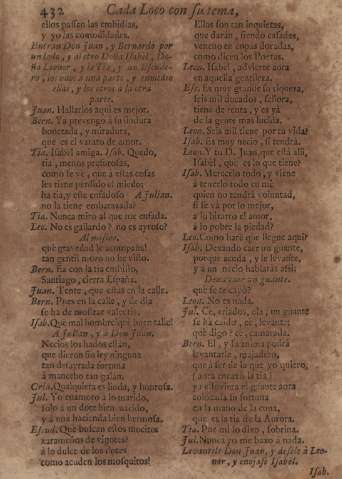 432 Cada Loco con su tema,
ellos passen las crobidias,
y yo las comodidades.
Entran Don Juan, y Bernardo por
un lado, y al otro Doña Isabel, Do-
ña Leonor, y la Tia, y un Escude-
ro, los unos a una parte, y
ellas, y los otros à la otra
parte.
Juan. Hallarlos aqui es mejor.
Bern. Ya prevengo à su
honestad, y miradura,
que es el varato de amor.
Tia. Isabel amiga. Isab. Quedo,
tia, menos prosturosas,
como le ve, con à estas cosas
les tiene perdido el miedo:
ha tia, y esse enfadoso A Julian.
no la tiene embarazada?
Tia. Nunca miro al que me enfada.
Leo. No es gallardo? no es ayroso?
Al mismo.
què gravedad le acompaña!
tan gentil moro no he visto.
Bern. Ea con la tia embisto,
Santiago, cierra España.
Juan. Tente, que estàs en la calle.
Bern. Pues en la calle, y de dia
se ha de mostrar valentia.
Isab. Què mal hombre, què buen talle!
A Julian, y à Don Juan.
Necios los hados están,
que dieron sin ley ninguna
tan desayrada fortuna
à mancebo tan galan.
Cria. Qualquiera es linda, y honrosa.
Jul. Yo enamoro à lo marido,
solo à un dote bien nacido,
y à una hacienda bien hermosa.
Escud. Què buscan estos mocitos
à lo dulce de los dotes
como acuden los mosquitos!
Ellos son tan inquietos,
que daràn, siendo casados,
veneno en copas doradas,
como dicen los Poetas.
Leon. Isabel, advierte aora
en aquella gentileza.
Esc. Es muy grande su riqueza,
seis mil ducados, señora,
tiene de renta, y es yà
de la gente mas lucida.
Leon. Seis mil tiene por tu vida?
Isab. Es muy necio, si tendrà.
Leon. Y tu D. Juan, que està allì,
Isabel, què es lo que tiene?
Isab. Merecelo todo, y viene
à tenerlo todo en mì:
quien no tendrà voluntad,
si se và por lo mejor,
à lo bizarro el amor,
à lo pobre la piedad?
Leon. Como harè que llegue aqui?
Isab. Dexando caer un guante,
porque acuda, y se levante,
y à un necio hablaràs assi:
Dexa caer un guante.
què se te cayò?
Leon. No es nada.
Jul. Ce, criados, ola, un guante
se ha caìdo, ce, levanta;
què digo? ce, camarada.
Bern. El, y su anima podrà
levantarle, majadero,
que à ser de la que yo quiero,
y ya estuviera el guante aora
colocada su fortuna
en la mano de la cuna,
que es la tia de la Aurora.
Tia. Por mì lo dixo, sobrina.
Jul. Nunca yo me baxo à nada.
Levantale Don Juan, y dasele à Leo-
nor, y enojase Isabel.
Isab.